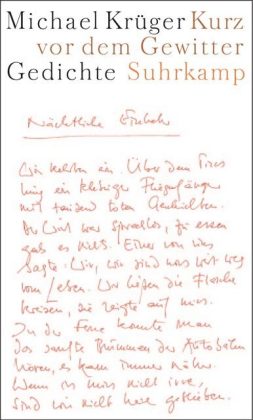 Michael Krüger Kurz
vor dem Gewitter
Gedichte Suhrkamp
Nächtliche Einkehr
Wir kehrten ein. Über dem Tresen
hing ein klebriger Fliegenfänger
mit tausend toten Geschichten.
Der Wirt war sprachlos, zu essen
gab es nichts. Einer von uns
sagte: Wir, wir sind noch weit weg
vom Leben. Wir ließen die Flasche
kreisen, sie zeigte auf uns.
In der Ferne konnte man
das sanfte Brummen der Autobahn
hören, es kam immer näher.
Wenn ich mich nicht irre,
sind wir nicht lange geblieben.